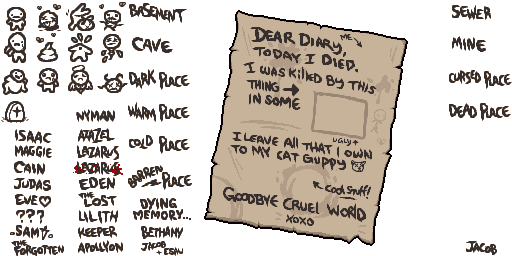 BASEMENT
CAVE
DARK PLACE
WARM PLACE
COLD PLACE
BARREN PLACE
DYING MEMORY...
ISAAC
MAGGIE
CAIN
JUDAS
EVE♡
???
SAM
THE FORGOTTEN
NYMAN
AZAZEL
LAZARUS
LAZARUS
EDEN
THE LOST
LILITH
KEEPER
APOLLYON
BETHANY
JACOB + ESAU
DEAR DIARY,
ME
TODAY I DIED.
I WAS KILLED BY THIS
THING →
IN SOME
UGLY↑
I LEAVE ALL THAT I OWN
TO MY CAT GUPPY
COOL STUFF!
GOODBYE CRUEL WORLD
XOXO
SEWER
MINE
CURSED PLACE
DEAD PLACE
JACOB